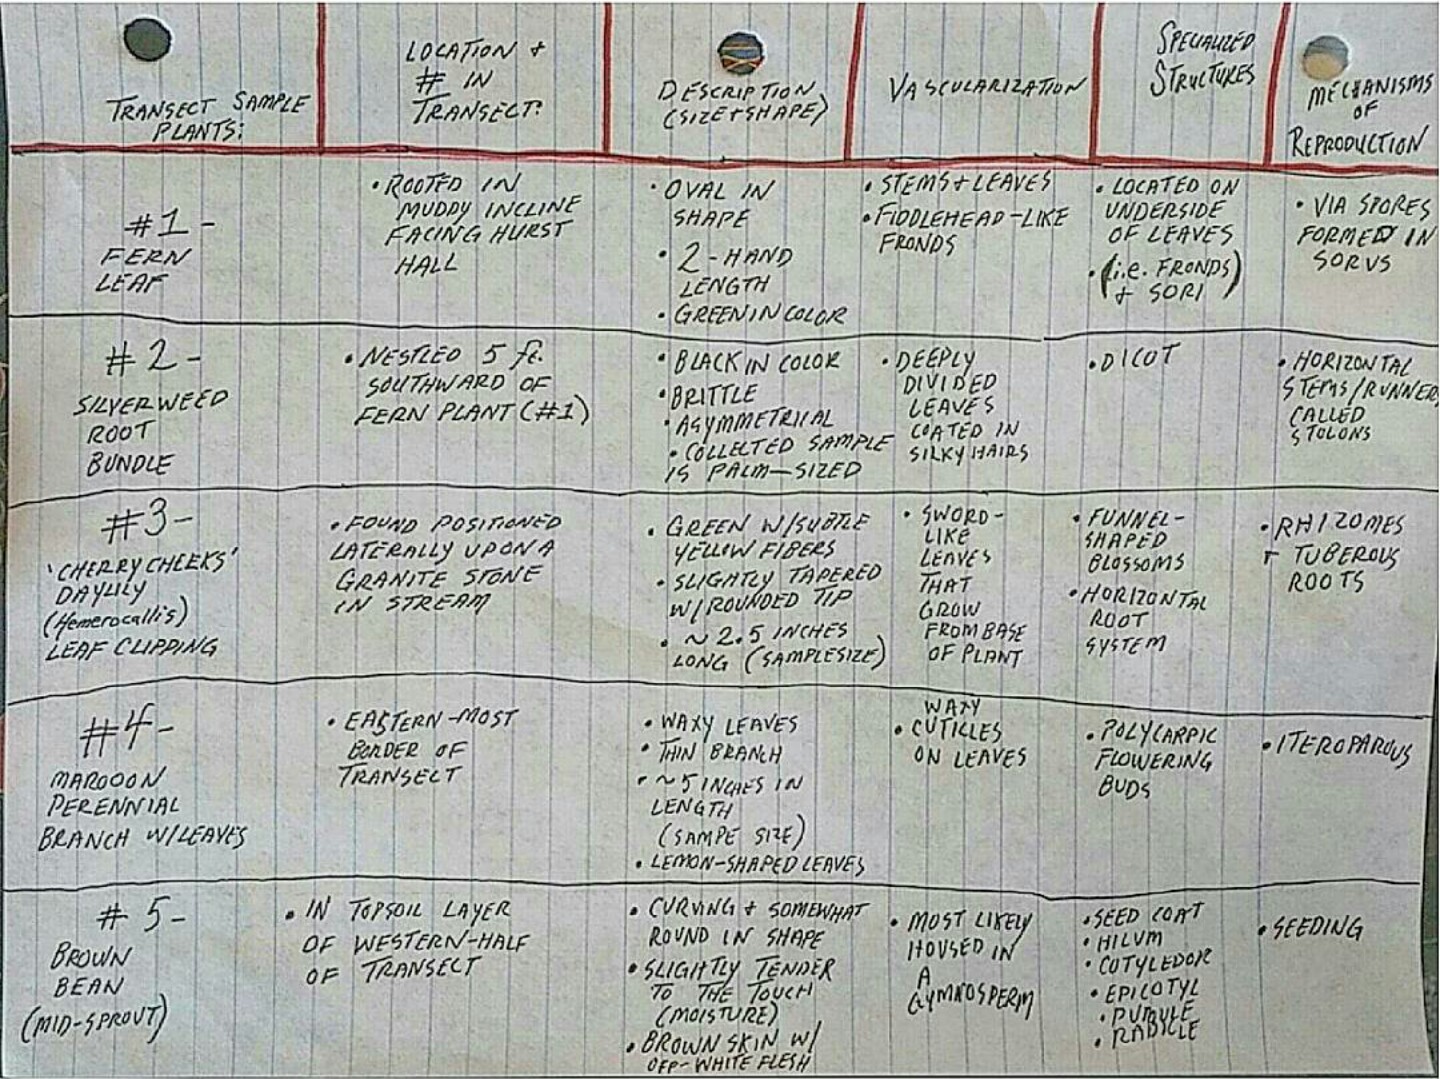 TRANSECT SAMPLE
PLANTS:
LOCATION +
# IN
TRANSECT:
DESCRIPTION
(SIZE+SHAPE)
VASCULARIZATION
SPECIALIZED
STRUCTURES
MECHANISMS
OF
REPRODUCTION
#1 -
FERN
LEAF
• ROOTED IN
MUDDY INCLINE
FACING HURST
HALL
• OVAL IN
SHAPE
• 2-HAND
LENGTH
• GREEN IN COLOR
• STEMS + LEAVES
• FIDDLEHEAD-LIKE
FRONDS
• LOCATED ON
UNDERSIDE
OF LEAVES
• (i.e. FRONDS)
+ SORI
• VIA SPORES
FORMED IN
SORUS
#2 -
SILVERWEED
ROOT
BUNDLE
• NESTLED 5 ft.
SOUTHWARD OF
FERN PLANT (#1)
• BLACK IN COLOR
• BRITTLE
• ASYMMETRICAL
• COLLECTED SAMPLE
IS PALM-SIZED
• DEEPLY
DIVIDED
LEAVES
COATED IN
SILKY HAIRS
• DICOT
• HORIZONTAL
STEMS/RUNNERS
CALLED
STOLONS
#3-
'CHERRY CHEEKS'
DAYLILY
(Hemerocallis)
LEAF CLIPPING
• FOUND POSITIONED
LATERALLY UPON A
GRANITE STONE
IN STREAM
• GREEN W/SUBTLE
YELLOW FIBERS
• SLIGHTLY TAPERED
W/ROUNDED TIP
• ~2.5 INCHES
LONG (SAMPLE SIZE)
• SWORD-
LIKE
LEAVES
THAT
GROW
FROM BASE
OF PLANT
• FUNNEL-
SHAPED
BLOSSOMS
• HORIZONTAL
ROOT
SYSTEM
• RHIZOMES
+ TUBEROUS
ROOTS
#4-
MAROOON
PERENNIAL
BRANCH W/LEAVES
• EASTERN-MOST
BORDER OF
TRANSECT
• WAXY LEAVES
• THIN BRANCH
• ~5 INCHES IN
LENGTH
(SAMPE SIZE)
• LEMON-SHAPED LEAVES
WAXY
• CUTICLES
ON LEAVES
• POLYCARPIC
FLOWERING
BUDS
• ITEROPAROUS
#5-
BROWN
BEAN
(MID-SPROUT)
• IN TOPSOIL LAYER
OF WESTERN-HALF
OF TRANSECT
• CURVING + SOMEWHAT
ROUND IN SHAPE
• SLIGHTLY TENDER
TO THE TOUCH
(MOISTURE)
• BROWN SKIN W/
OFF-WHITE FLESH
• MOST LIKELY
HOUSED IN
A
GYMNOSPERM
• SEED COAT
• HILUM
• COTYLEDON
• EPICOTYL
• RADICLE
• SEEDING